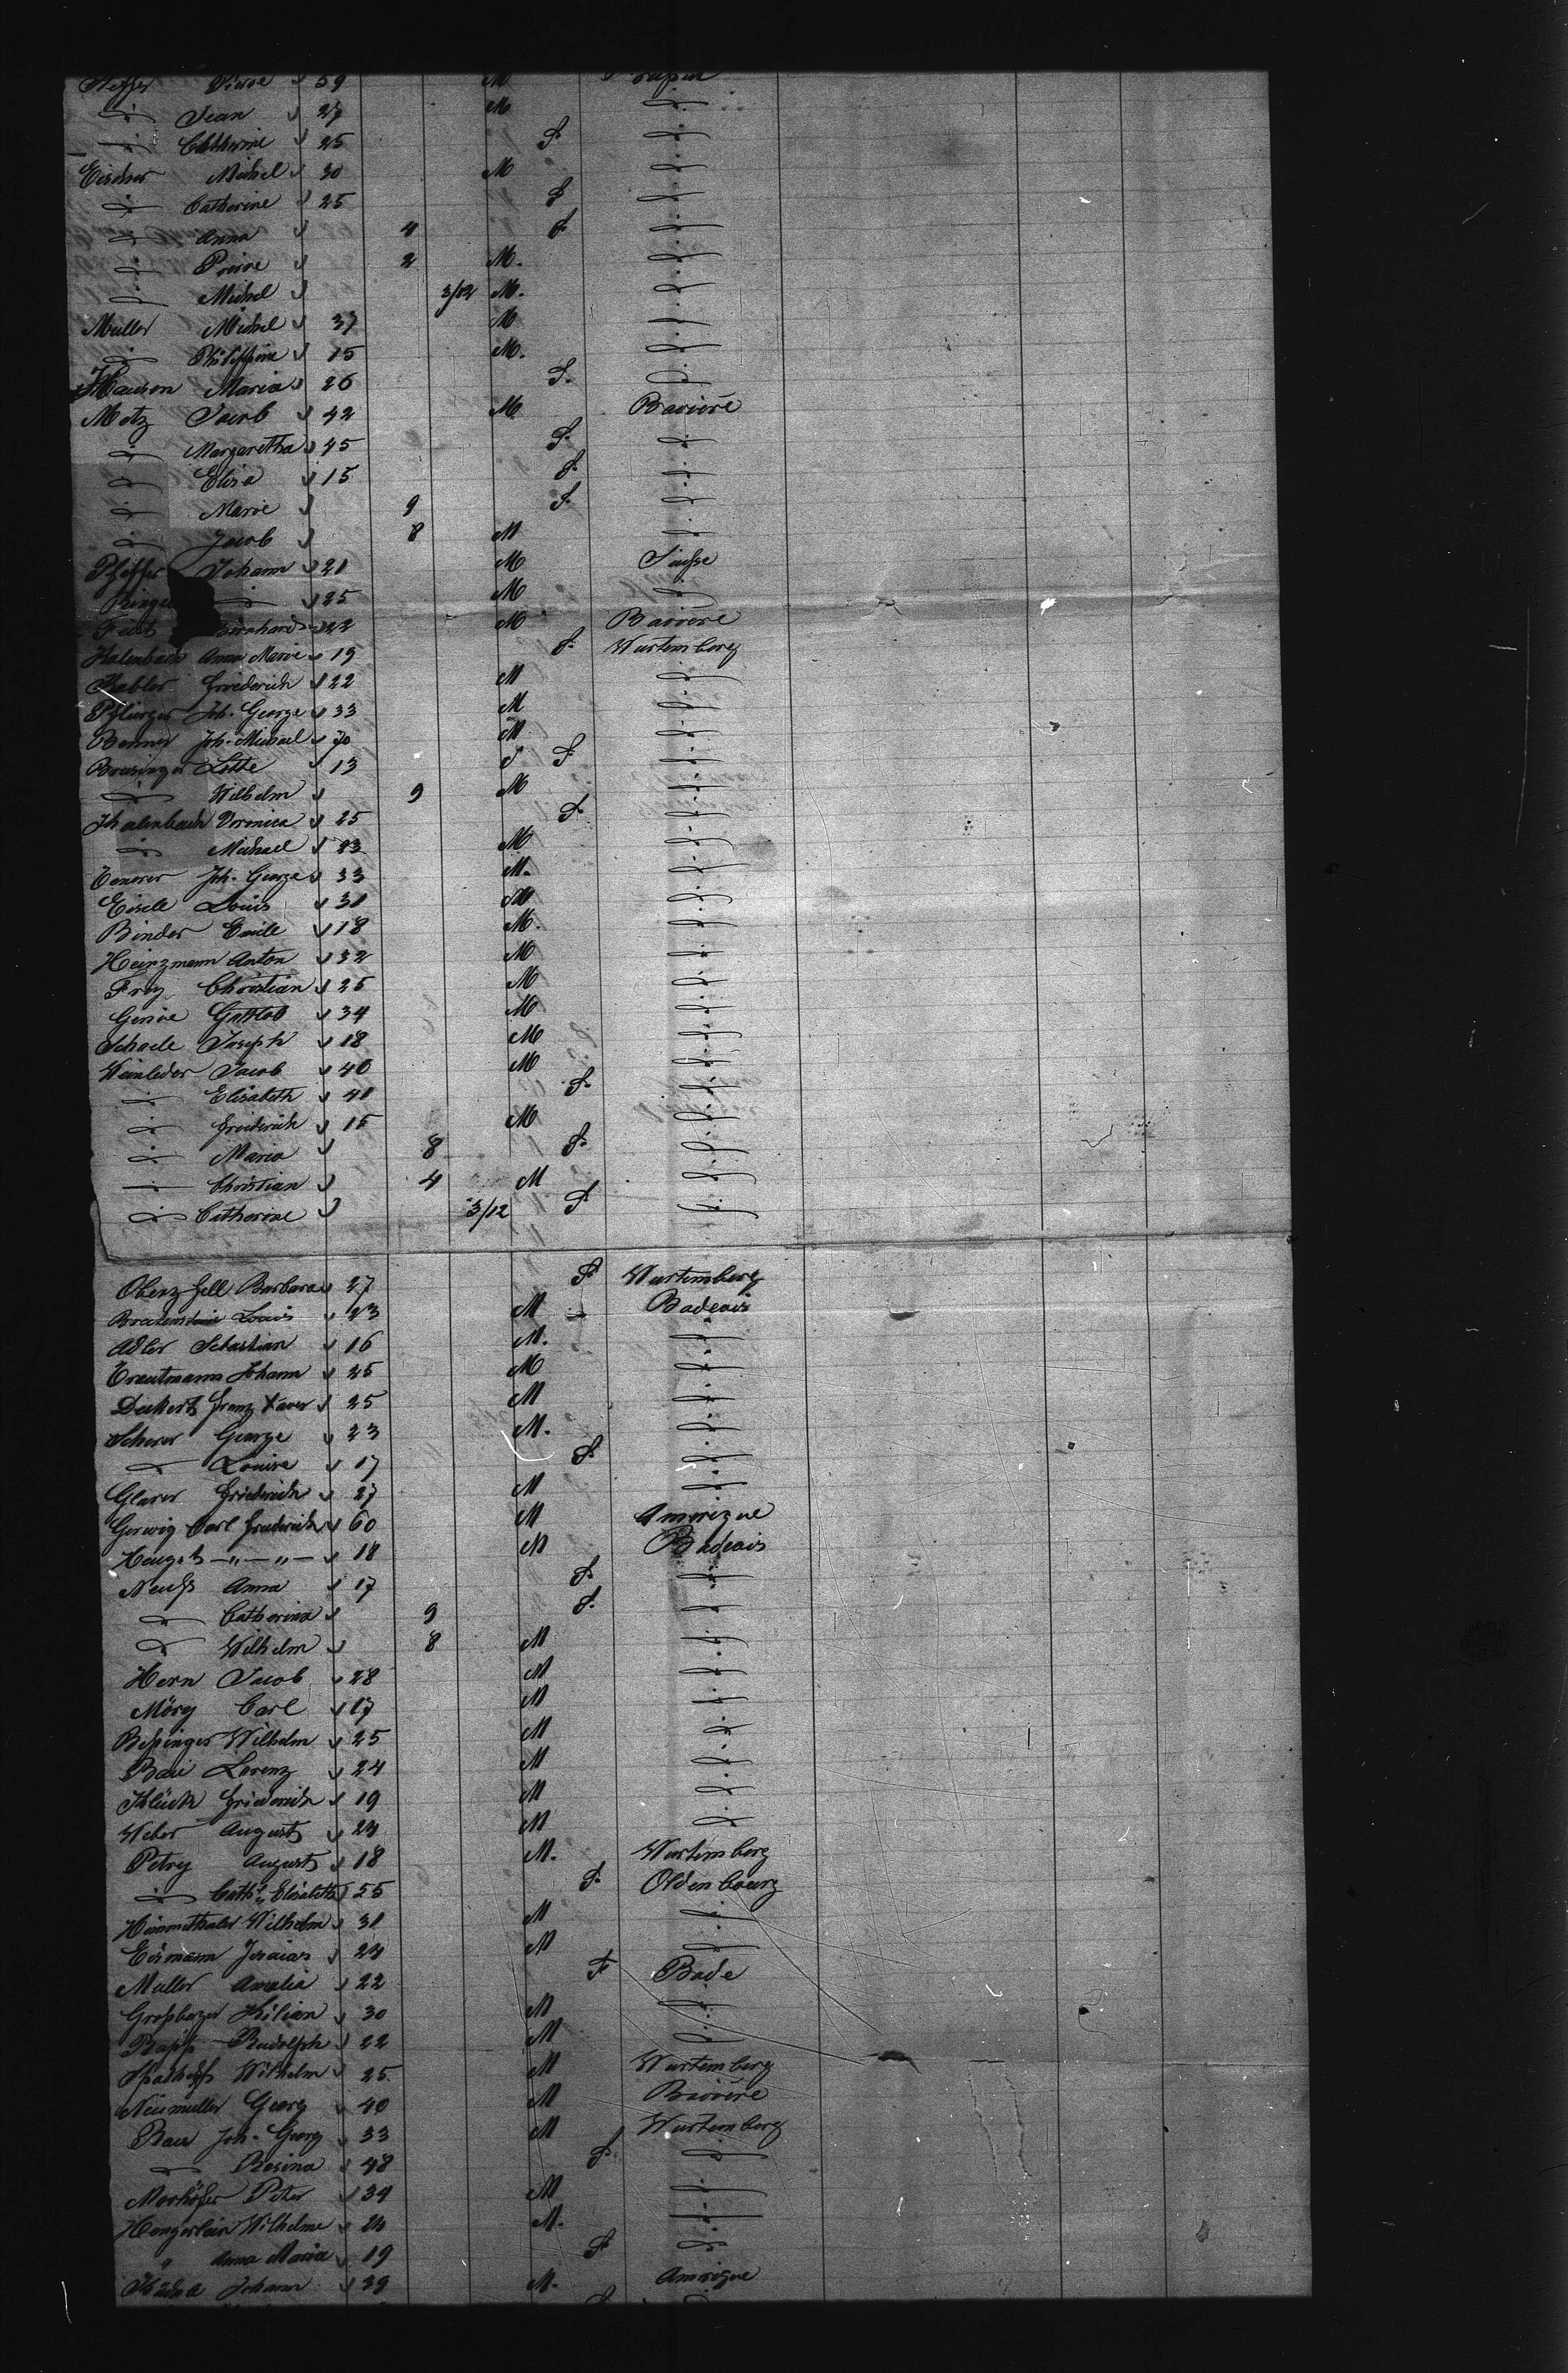 Pierre 59 M
" Jean 27 M "
" Catherine 25 F "
Eischer Michel 30 M "
" Catherine 25 F "
" Anna 4 F "
" Pierre 2 M. "
" Michel 3/12 M. "
Muller Michel 37 M "
" Philippine 15 M. "
Maria 26 F. "
Metz Jacob 42 M Bavière
" Margaretha 45 F. "
" Elisa 15 F. "
" Marie 9 F. "
" Jacob 8 M "
Pfeiffer Johann 21 M Suisse
" 25 M "
22 M Bavière
Halenbach Anna Marie 19 F. Wurtemberg
Friederich 22 M "
Joh. George 33 M "
Joh. Michael M "
Lotte 13 F "
" Wilhelm 9 M "
Veronica 25 F. "
" Michael 23 M "
Joh. George 33 M. "
Eisele Louis 31 M "
Binder Emile 18 M. "
Heinzmann Anton 32 M "
Frey Christian 25 M "
Gottlob 34 M "
Schaele Joseph 18 M "
Weinleder Jacob 40 M "
" Elisabeth 41 F. "
" Friederich 15 M "
" Maria 8 F. "
" Christian 4 M "
" Catherine 3/12 F "
Oberzsell Barbara 27 F Wurtemberg
Louis 23 M Badeois
Adler Sebastian 16 M. "
Trautmann Johann 25 M "
Deckert Franz Xaver 25 M "
Scherer George 23 M. "
" Louise 17 F. "
Glaser Friederich 27 M "
Gerwig Carl Frederich 60 M Amerique
Hengst — " — " — 18 M Badeois
Neuss Anna 17 F. "
" Catherina 9 F. "
" Wilhelm 8 M "
Horn Jacob 28 M "
Mörg Carl 17 M "
Bessinger Wilhelm 25 M "
Lorenz 24 M "
Klück Friederich 19 M "
Weber August 24 M "
Petry August 18 M. Wurtemberg
" Cath. Elisabeth 55 F. Oldenbourg
Himmethaler Wilhelm 31 M "
Eismann Jesaias 24 M "
Muller Amalia 22 F Bade
Kilian 30 M "
Rapp Rudolph 22 M "
Wilhelm 25. M Wurtemberg
Neumuller Georg 40 M Bavière
Bau Joh. Georg 33 M Wurtemberg
" Rosina 48 F. "
Morhöfer Peter 34 M "
Hengerlein Wilhelme 24 M. "
" Anna Maria 19 F "
Johann 39 M. Amerique